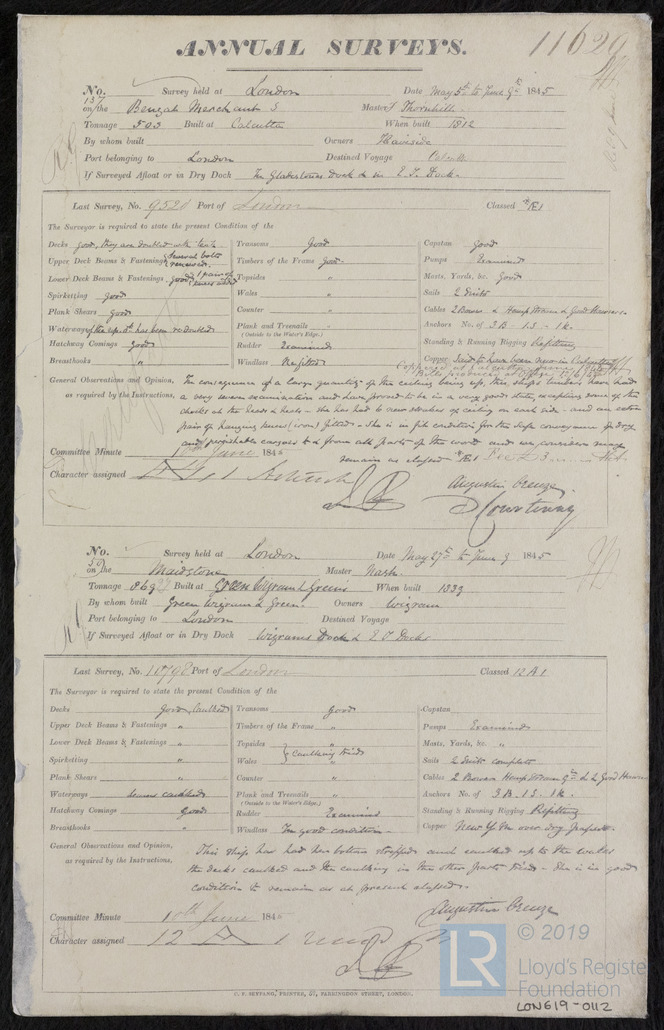 ANNUAL SURVEYS. 11629
No. 137 Survey held at London Date May 5th to June 9th 1845
on the Bengal Merchant S Master J Thornhill
Tonnage 503 Built at Calcutta When built 1812
By whom built Owners Haviside
Port belonging to London Destined Voyage Calcutta
If Surveyed Afloat or in Dry Dock In Gladstones Dock & in E.I. Dock.
Last Survey, No. 9520 Port of London Classed *Æ1
The Surveyor is required to state the present Condition of the
Decks good, they are doubled with
Upper Deck Beams & Fastenings Several bolts renewed
Lower Deck Beams & Fastenings good & 1 pair of knees added
Spirketting good
Plank Shears good
Waterways of the up. dk has been redoubled
Hatchway Comings good
Breasthooks "
Transoms Good
Timbers of the Frame Good
Topsides "
Wales "
Counter "
Plank and Treenails "
(Outside to the Water's Edge.)
Rudder Examined
Windlass Refitted
Capstan good
Pumps Examined
Masts, Yards, &c. Good
Sails 2 Suits
Cables 2 Bower & Hemp Stream & Good Hawsers.
Anchors No. of 3B-1S-1K.
Standing & Running Rigging Refitting
Copper Said to have been new in Calcutta
General Observations and Opinion, In consequence of a large quantity of the ceiling being up, the ship's timbers have had
as required by the Instructions, a very severe examination and have proved to be in a very good state, excepting some of the
chocks at the heads & heels - she has had a new strakes of ceiling on each side - and an extra
pair of hanging knees (iron) fitted - She is in fit condition for the safe conveyance of dry
and perishable cargoes to & from all parts of the world and we consider may
remain as classed *Æ1
Committee Minute 10th June 1845
Character assigned
Augustin Creuze
Courtenay
No. 59 Survey held at London Date May 27th to June 9 1845
on the Maidstone Master Nash
Tonnage 869 Built at Green Wigram & Greens When built 1839
By whom built Green Wigram & Green. Owners Wigram
Port belonging to London Destined Voyage
If Surveyed Afloat or in Dry Dock Wigrams Dock & E I Docks
Last Survey, No. 10798 Port of London Classed 12 A 1
The Surveyor is required to state the present Condition of the
Decks Good, Caulked
Upper Deck Beams & Fastenings "
Lower Deck Beams & Fastenings "
Spirketting "
Plank Shears "
Waterways seams caulked
Hatchway Comings Good
Breasthooks "
Transoms good
Timbers of the Frame "
Topsides
Wales } Caulking tried
Counter "
Plank and Treenails "
(Outside to the Water's Edge.)
Rudder Examined
Windlass In good condition
Capstan
Pumps Examined
Masts, Yards, &c. "
Sails 2 Suits complete
Cables 2 Bower Hemp Stream & 2 Good Hawsers
Anchors No. of 3B.1S.1K.
Standing & Running Rigging Refitting
Copper New
General Observations and Opinion, This Ship has had her bottom stripped and caulked up to the wales
as required by the Instructions, the decks caulked and the caulking in the other parts tried - She is in good
condition & to remain as at present classed.
Augustin Creuze
Committee Minute 10th June 1845
Character assigned 12 A 1
C. F. SEYFANG, PRINTER, 57, FARRINGDON STREET, LONDON.
LR © 2019
Lloyd's Register
Foundation
LON619-0112